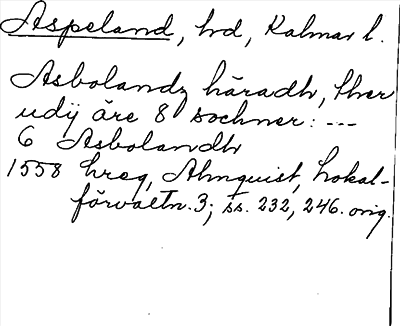 Aspeland, hd, Kalmar l.
Asbolandz häradh, ther
udÿ äre 8 sochner: ---
6 Asbolandh
1558 hreg, Almquist, Lokal-
förvaltn. 3; ss. 232, 246. orig.